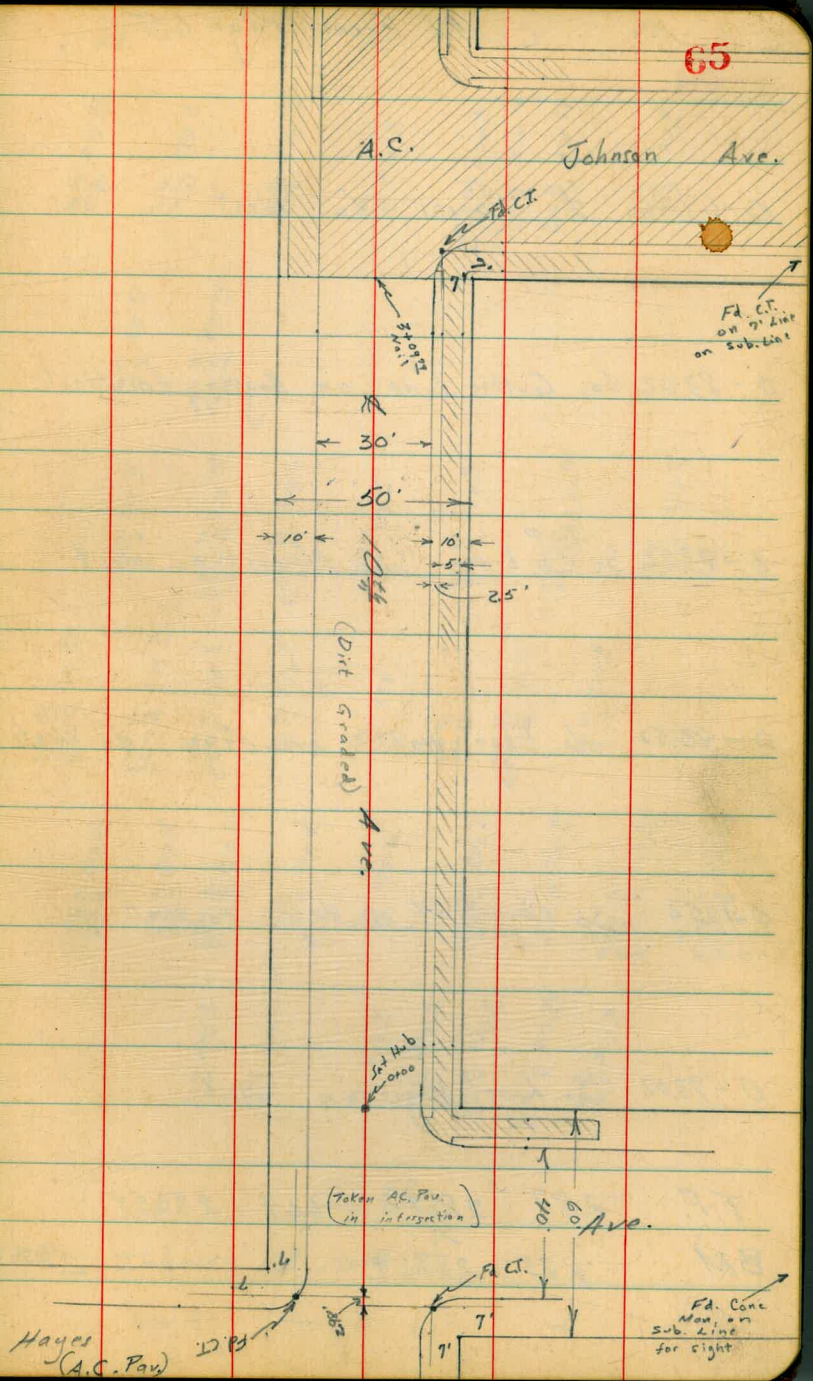 65
A.C.
Johnson Ave.
Fd. C.T.
7'
7'
Fd. C.T.
on 7' Line
on Sub. Line
Nail
30'
50'
10'
10'
5'
2.5'
10th
(Dirt Graded)
Ave.
Set Hub
0+00
(Token A.C. Pav.
in intersection)
40'
60'
Ave.
7'
7'
Fd. C.T.
Fd. C.T.
7'
7'
Hayes
(A.C. Pav.)
Fd. Conc
Mon. on
Sub. Line
for sight